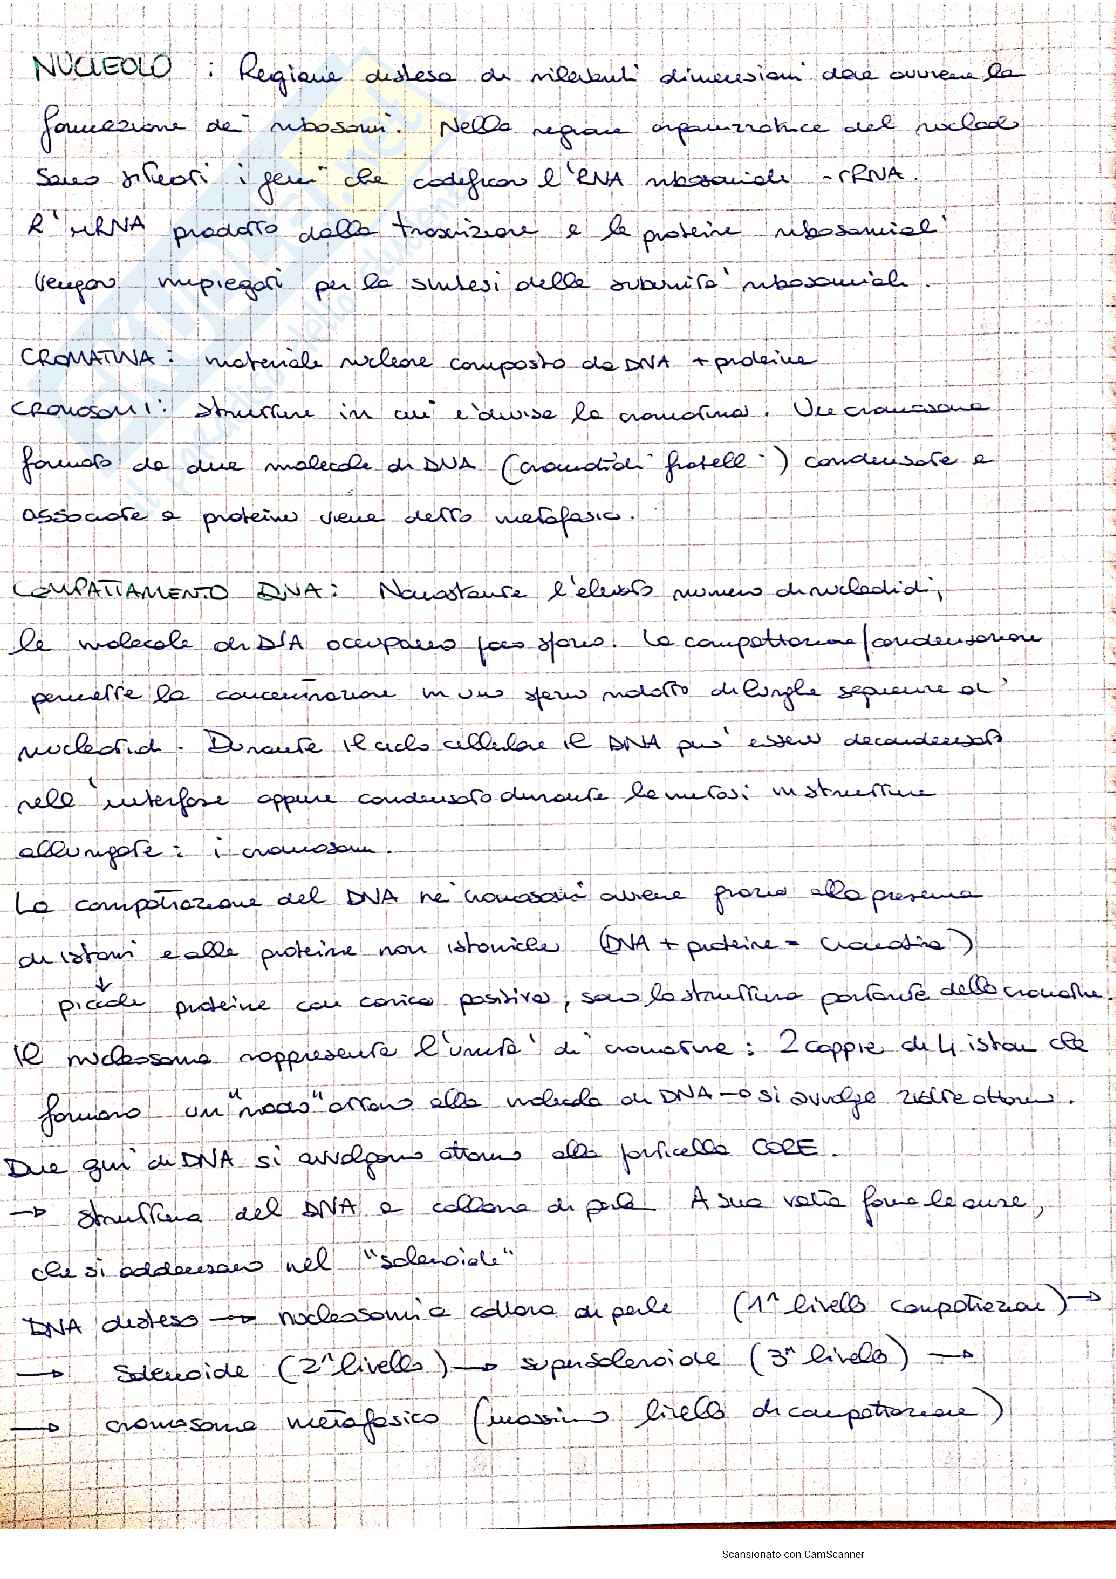 NUCLEOLO : Regione distesa di rilevanti dimensioni dove avviene la
formazione dei ribosomi. Nella regione organizzatrice del nucleolo
sono situati i geni che codificano l'RNA ribosomiale - rRNA.
L'rRNA prodotto dalla trascrizione e le proteine ribosomiali
vengono impiegati per la sintesi delle subunità ribosomiali.
CROMATINA: materiale nucleare composto da DNA + proteine
CROMOSOMI: strutture in cui è divisa la cromatina. Un cromosoma
formato da due molecole di DNA (cromatidi fratelli) condensate e
associate a proteine viene detto metafasico.
COMPATTAMENTO DNA: Nonostante l'elevato numero di nucleotidi,
le molecole di DNA occupano poco spazio. La compattazione/condensazione
permette la concentrazione in uno spazio ridotto di lunghe sequenze di
nucleotidi. Durante il ciclo cellulare il DNA può essere decondensato
nell'interfase oppure condensato durante la mitosi in strutture
allungate: i cromosomi.
La compattazione del DNA nei cromosomi avviene grazie alla presenza
di istoni e alle proteine non istoniche (DNA + proteine = cromatina)
↓
piccole proteine con carica positiva, sono la struttura portante della cromatina.
Il nucleosoma rappresenta l'unità di cromatina: 2 coppie di 4 istoni che
formano un "nodo" attorno alla molecola di DNA → si avvolge attorno.
Due giri di DNA si avvolgono attorno alla particella CORE.
→ struttura del DNA a collana di perle A sua volta forma le anse,
che si addensano nel "solenoide"
DNA disteso → nucleosomi a collana di perle (1^ livello compattazione) →
→ solenoide (2^ livello) → supersolenoide (3^ livello) →
→ cromosoma metafasico (massimo livello di compattazione)
Scansionato con CamScanner